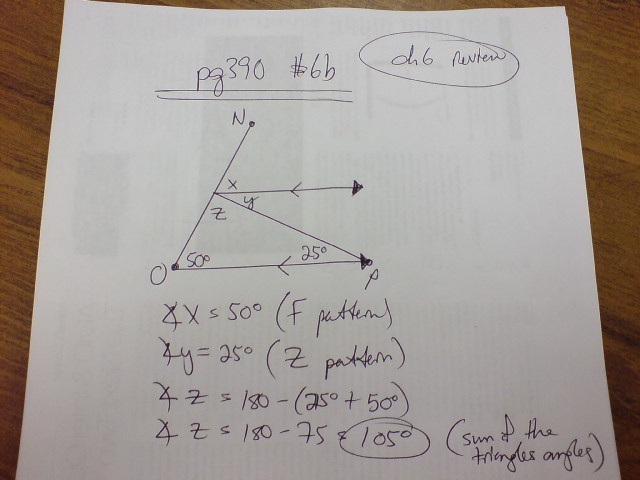 pg390 #6b
ch6 review
N
x
y
z
50°
25°
O
P
∡x = 50° (F pattern)
∡y = 25° (Z pattern)
∡z = 180 - (25° + 50°)
∡z = 180 - 75 = 105° (sum of the
triangles angles)